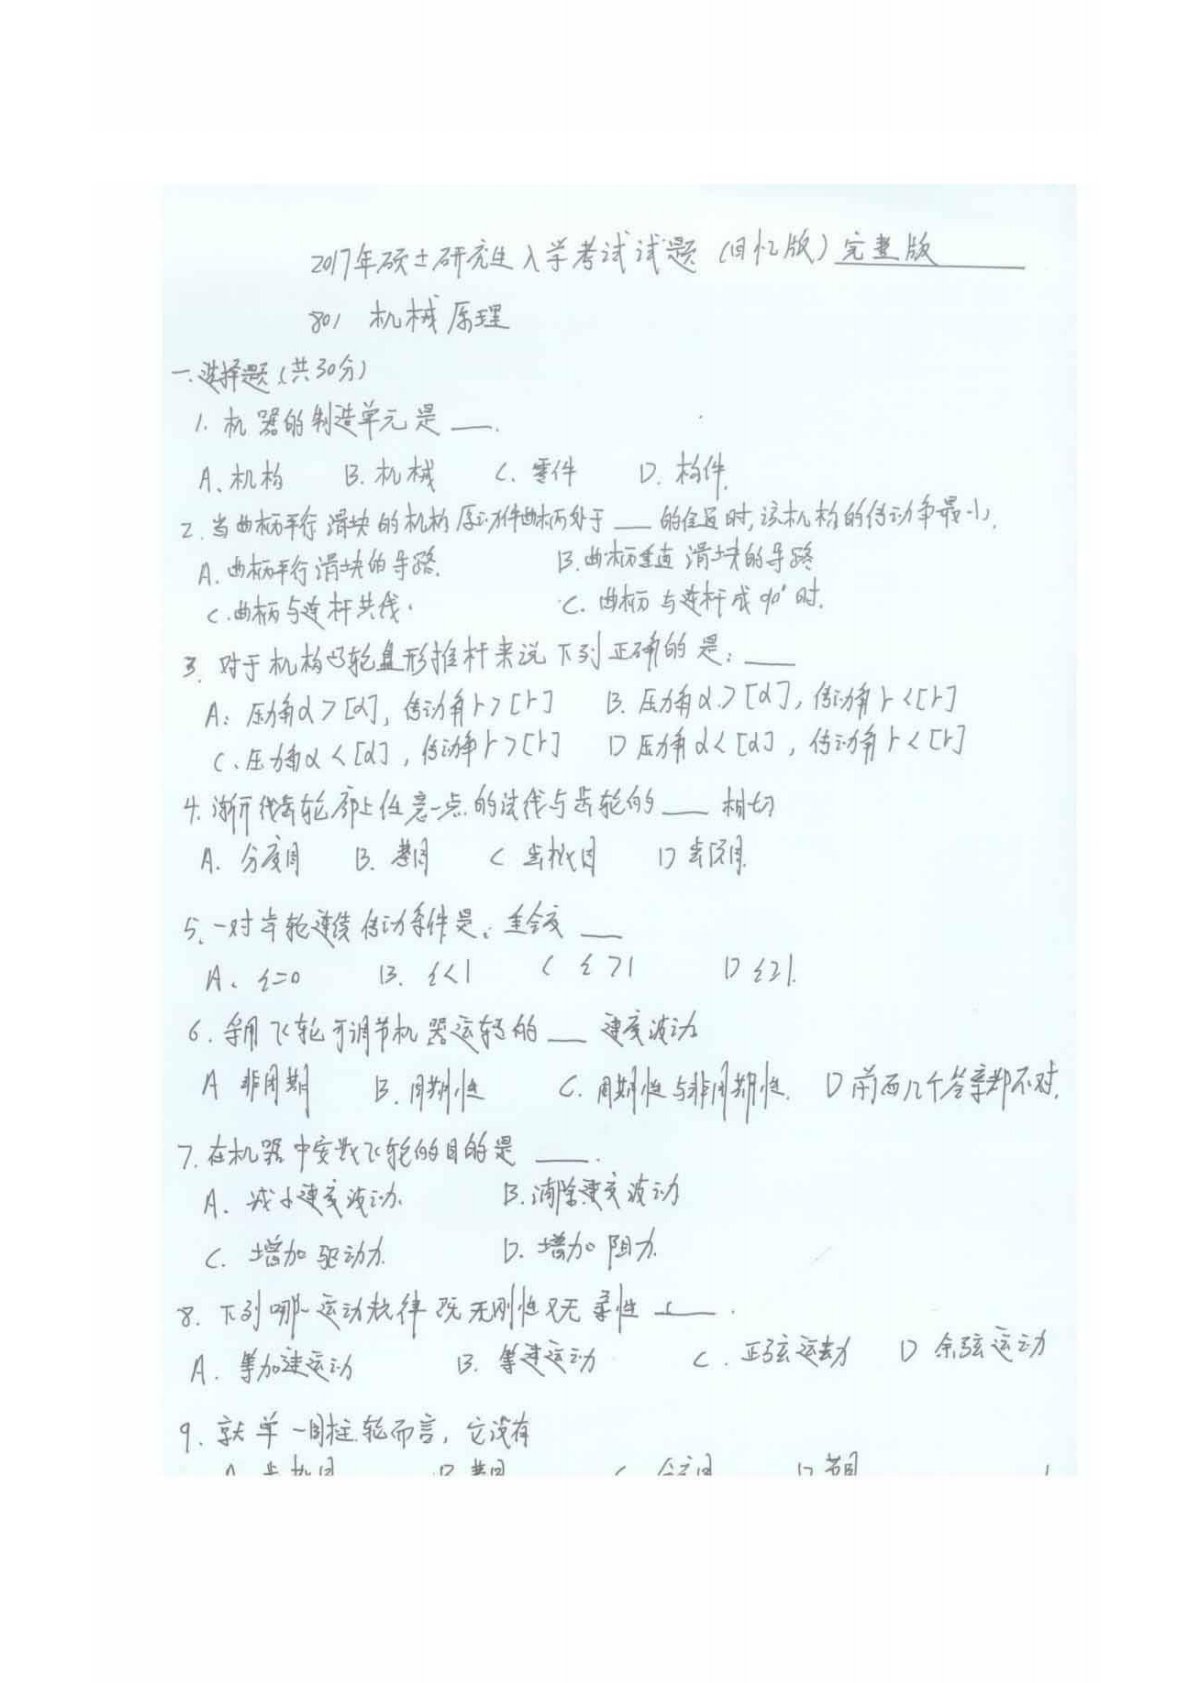 2017年硕士研究生入学考试试题（回忆版）完整版
801 机械原理
一.选择题（共30分）
1. 机器的制造单元是 ___.
A、机构 B. 机械 C. 零件 D. 构件.
2. 当曲柄平行滑块的机构原动件曲柄处于 ___ 的位置时,该机构的传动角最小.
A. 曲柄平行滑块的导路. B. 曲柄垂直滑块的导路
C. 曲柄与连杆共线. C. 曲柄与连杆成90°时.
3. 对于机构凸轮盘形推杆来说下列正确的是: ___
A: 压力角α>[α], 传动角r>[r] B. 压力角α>[α], 传动角r<[r]
C、压力角α<[α], 传动角r>[r] D 压力角α<[α], 传动角r<[r]
4. 渐开线齿轮廓上任意一点的法线与齿轮的 ___ 相切
A. 分度圆 B. 基圆 C 齿根圆 D 齿顶圆.
5、一对齿轮连续传动条件是: 重合度 ___
A、ε=0 B. ε<1 C ε>1 D ε≥1.
6. 采用飞轮可调节机器运转的 ___ 速度波动
A 非周期 B. 周期性 C. 周期性与非周期性. D 前面几个答案都不对.
7. 在机器中安装飞轮的目的是 ___.
A. 减小速度波动. B. 消除速度波动
C. 增加驱动力. D. 增加阻力.
8. 下列哪一运动规律既无刚性又无柔性 ___.
A. 等加速运动 B. 等速运动 C. 正弦运动 D 余弦运动
9. 就单一圆柱轮而言, 它没有
A 齿根圆 B 基圆 C 分度圆 D 节圆